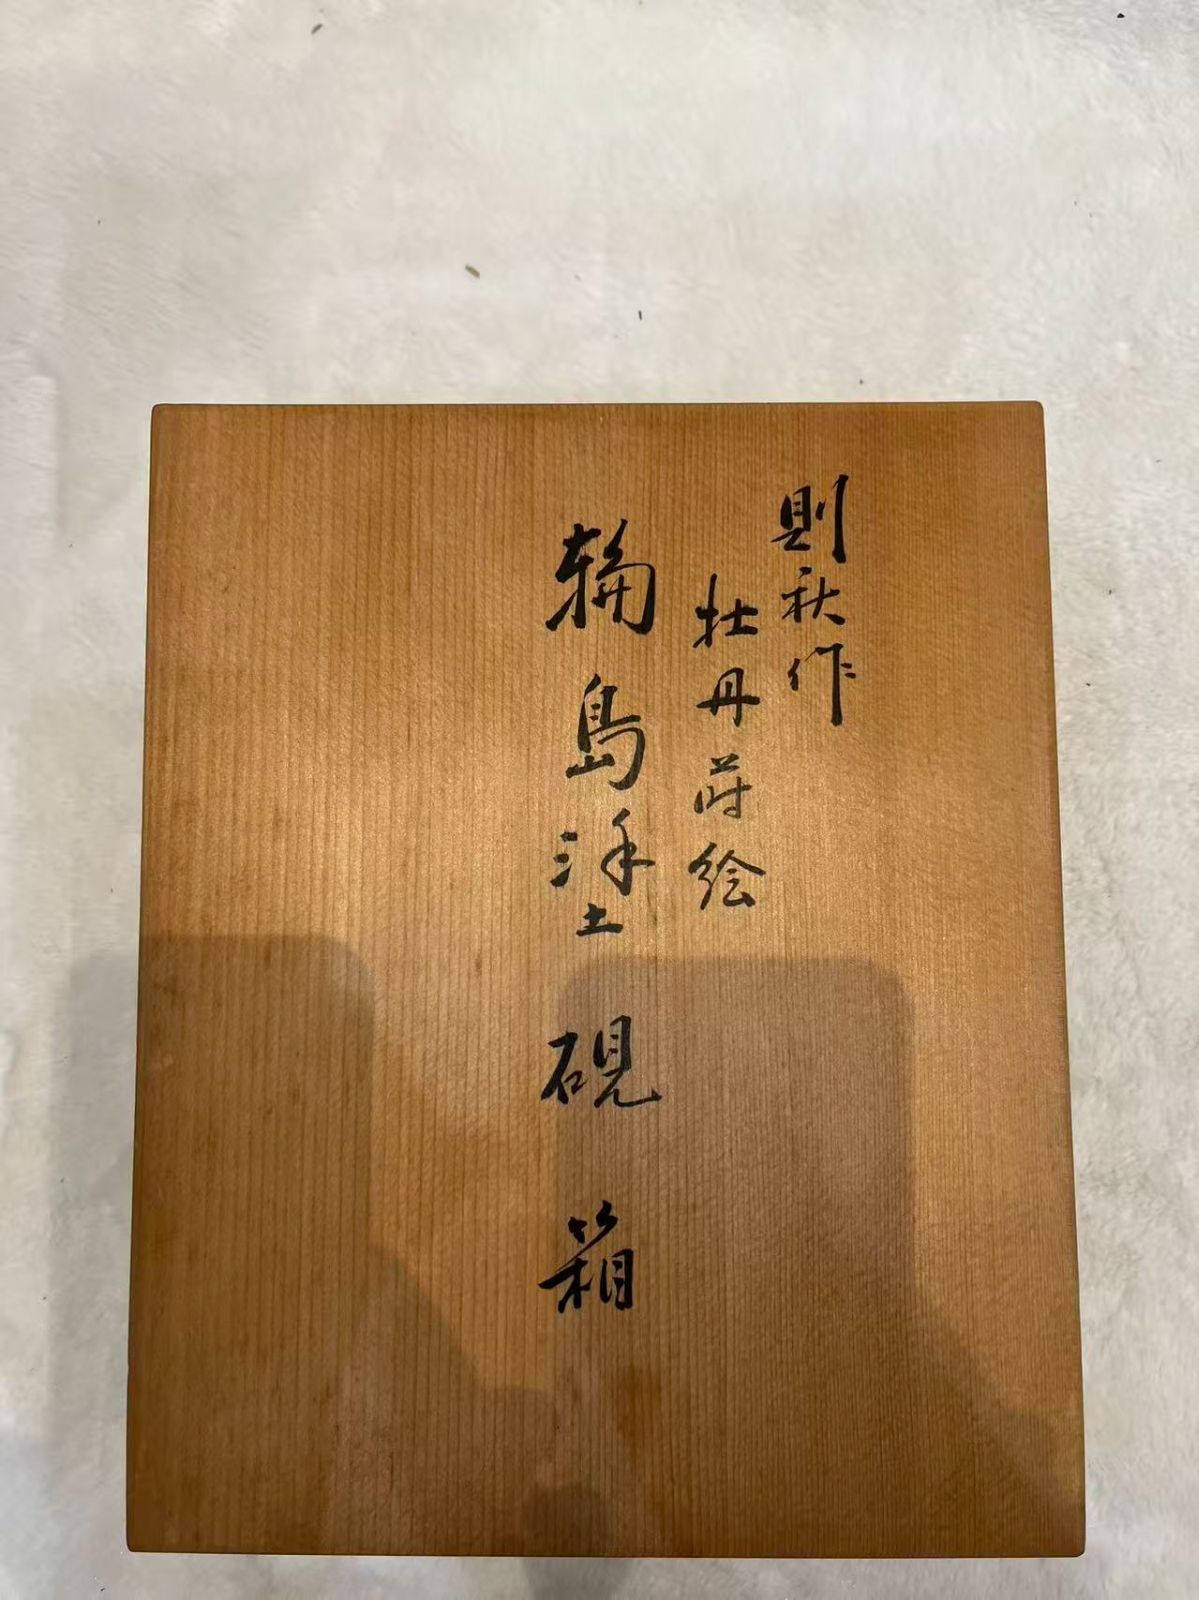 則秋作
牡丹蒔絵
輪島塗硯箱